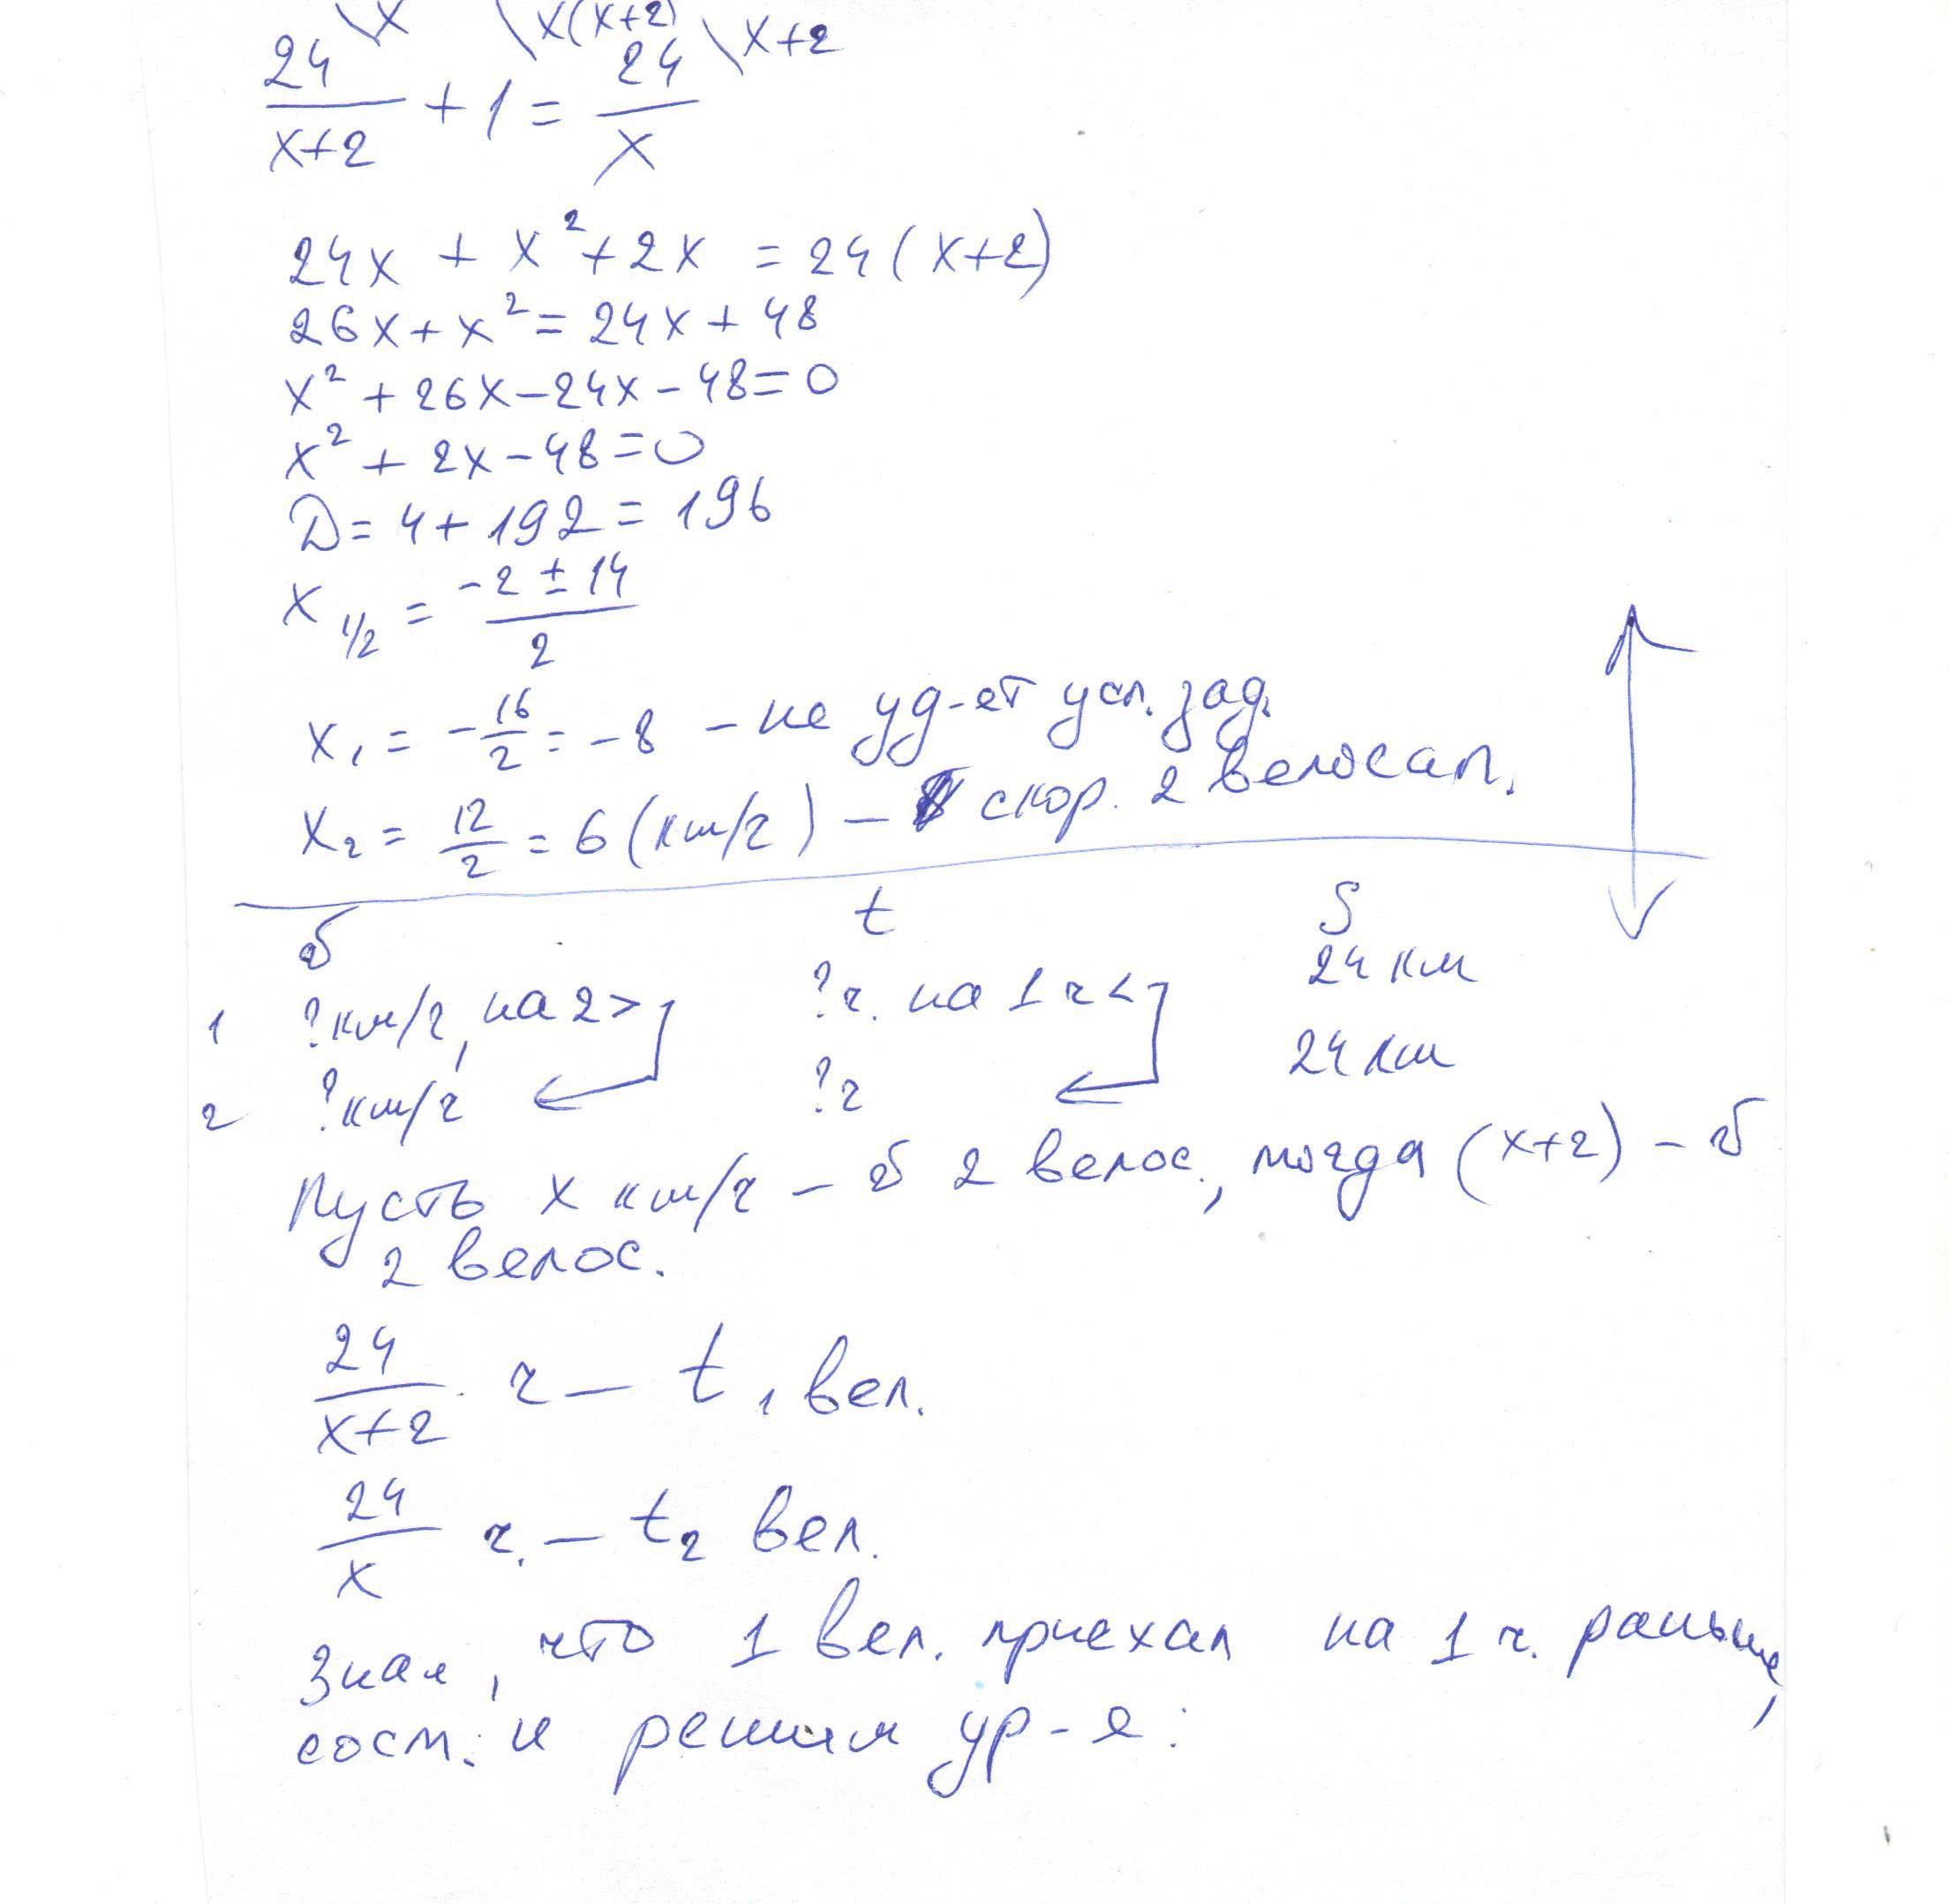 \x \x(x+2) \x+2
24/(x+2) + 1 = 24/x
24x + x² + 2x = 24(x+2)
26x + x² = 24x + 48
x² + 26x - 24x - 48 = 0
x² + 2x - 48 = 0
D = 4 + 192 = 196
x 1/2 = (-2 ± 14)/2
x₁ = -16/2 = -8 - не уд-ет усл. зад.
x₂ = 12/2 = 6 (км/ч) - скор. 2 велосап.
v t S
1 ?км/ч, на 2 > ?ч. на 1 ч < 24 км
2 ?км/ч ?ч 24 км
Пусть x км/ч - v 2 велос., тогда (x+2) - v
2 велос.
24/(x+2) ч - t₁ вел.
24/x ч. - t₂ вел.
Зная, что 1 вел. приехал на 1 ч. раньше,
сост. и решим ур-я: